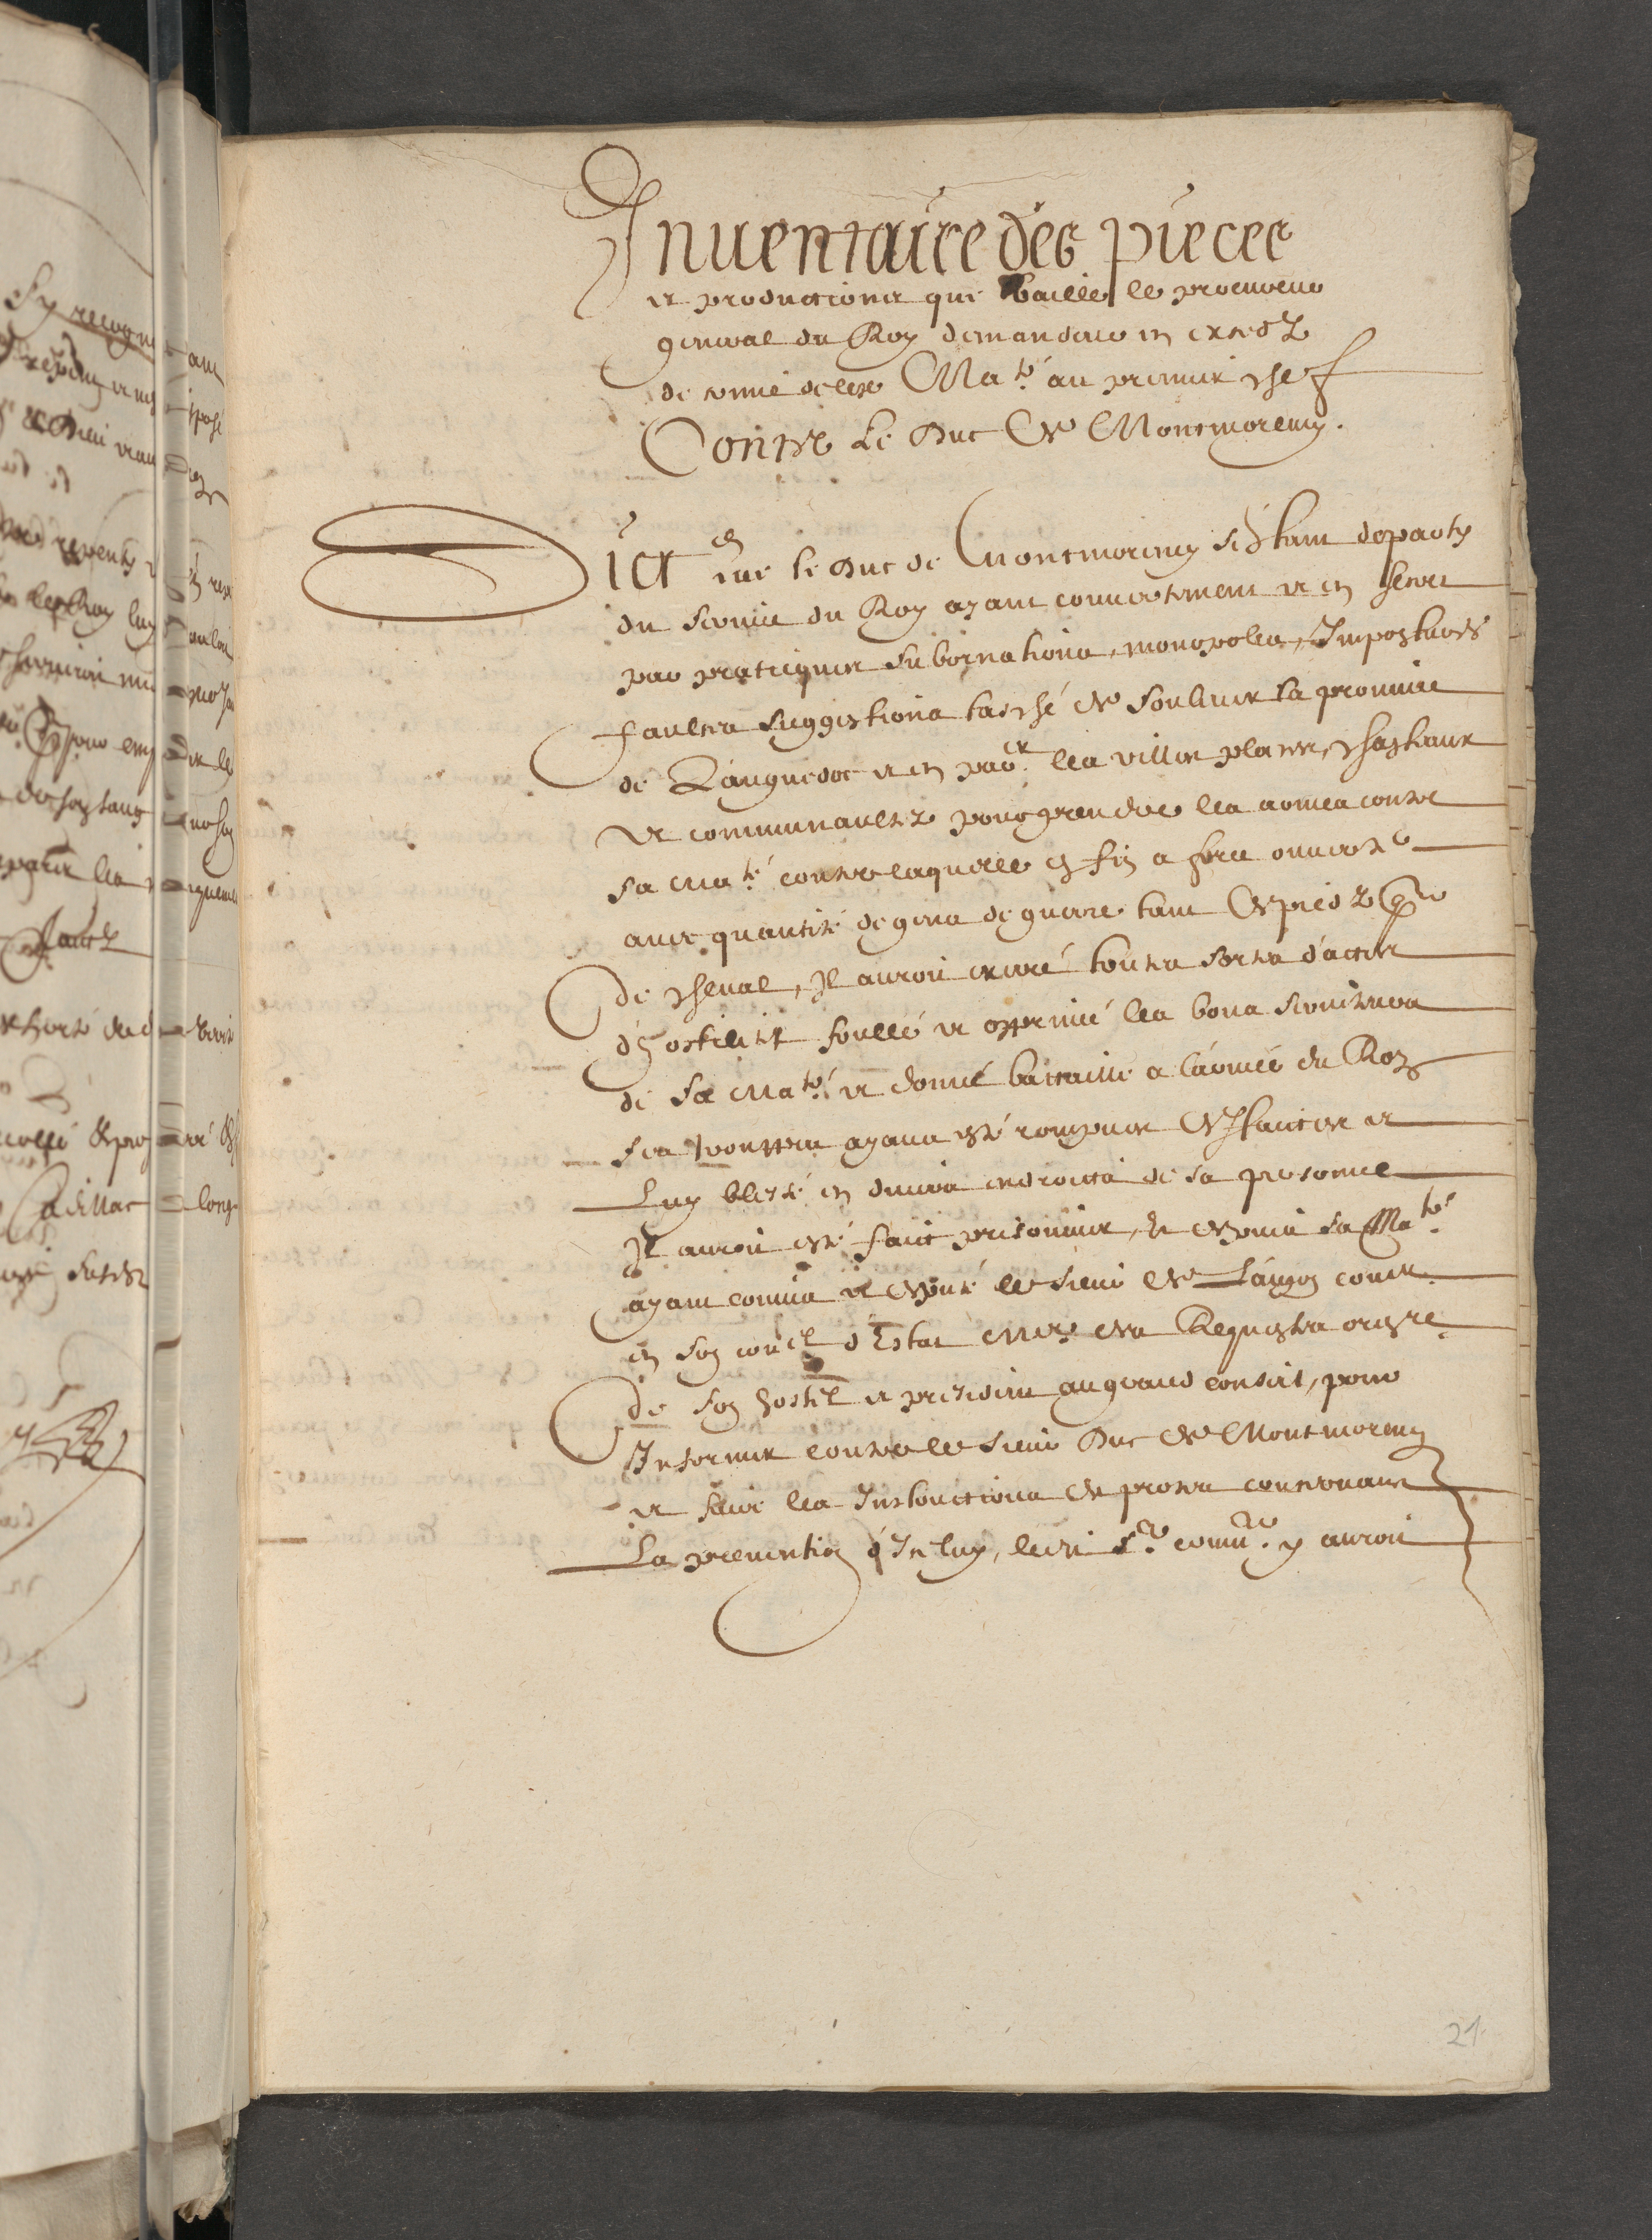 Inuentaire des pieces
et productions que baille le procureur
general du Roy demandeur en excedz
de crime de leze Ma.té au premier chef
Contre Le Duc de Montmorency.
Dict que le Duc de Montmorency s'estant departy
du seruice du Roy ayant couuertement et en secret
par pratiques subornations, monopoles, Impostures
faulses suggestions tasché de souleuer la prouince
de Languedoc et en par.er les villes places, chasteaux
et communaultez pour prendre les armes contre
sa Ma.té contre laquelle en fin a force ouuerte
auec quantité de gens de guerre tant de pied que
de cheual, Il auroit exercé toutes sortes d'actes
d'hostilité foullé et opprimé les bons seruiteurs
de sa Ma.té et donné battaille a l'armée du Roy
ses trouppes ayans esté rompues deffaictes et
Luy blessé en diuers endroictz de sa personne
Il auroit esté faict prisonnier, et depuis sa Ma.té
ayant commis et deputé le sieur de Laugon con.er
en son con.el d'Estat M.e des Requestes ord.re
de son hostel et president au grand conseil, pour
Informer contre le sieur Duc de Montmorency
et faire les Instructions de proces concernans
La preuention d'Icelluy, ledit s.r comm.re y auroit
21